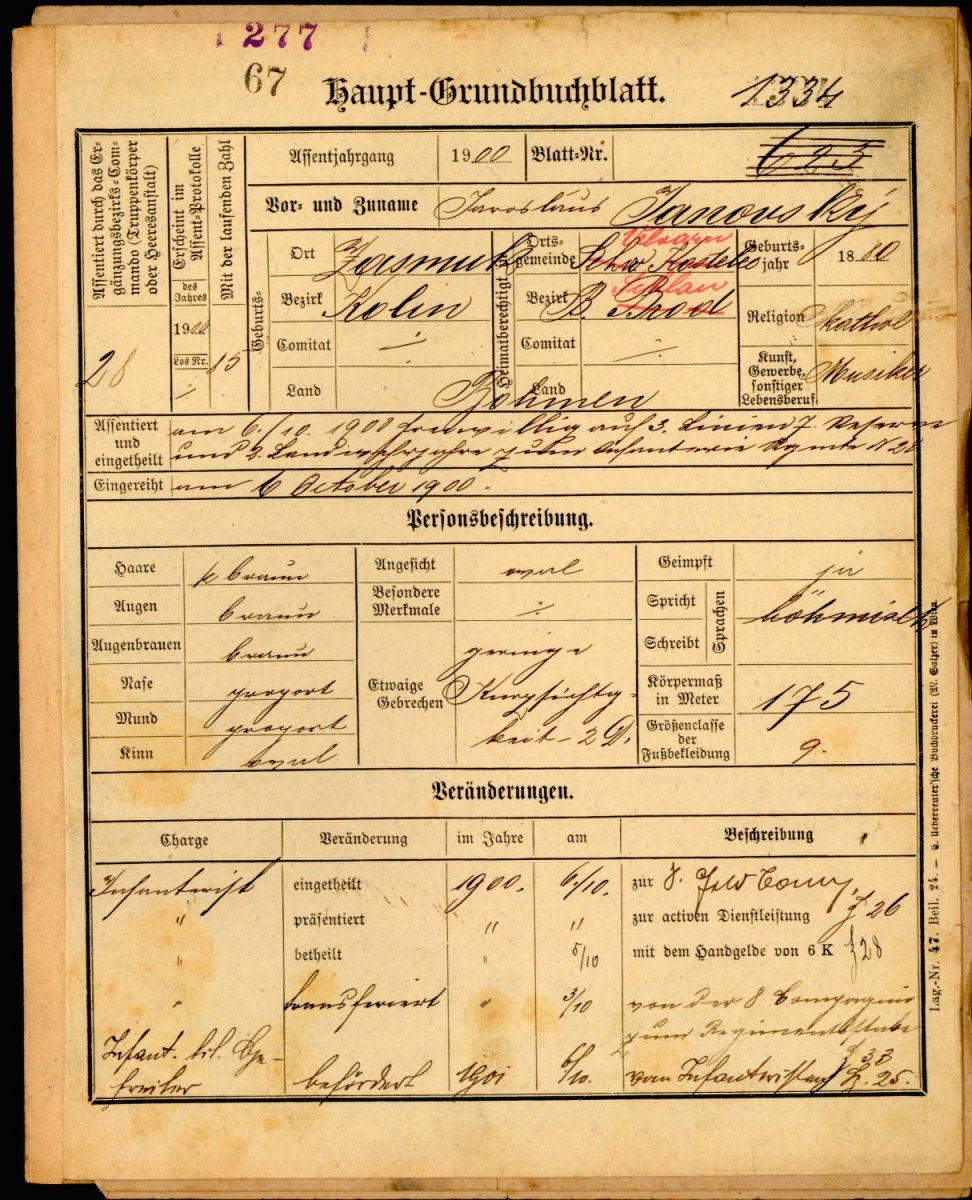 277
67
Haupt-Grundbuchblatt.
1334
Assentiert durch das Ergänzungsbezirks-Commando (Truppenkörper oder Heeresanstalt)
28
Erscheint im Assent-Protokolle
des Jahres
1900
Los Nr.
÷
Mit der laufenden Zahl
15
Assentjahrgang 1900 Blatt-Nr. 623
Vor- und Zuname Jaroslaus Janovský
Geburts-
Ort Zasmuk
Bezirk Kolin
Comitat ÷
Land Böhmen
Heimatberechtigt
Orts-
gemeinde Schw. Kosteletz
Bezirk B. Brod
Schlan
Comitat ÷
Land
Geburts-
jahr 1880
Religion kathol
Kunst,
Gewerbe,
sonstiger
Lebensberuf
Musiker
Assentiert
und
eingetheilt
am 6./10. 1900 freiwillig auf 3. Linien 7. Reserve
und 2. Landwehrjahre zum Infanterie Regmte N 28
Eingereiht am 6 October 1900.
Personsbeschreibung.
Haare braun
Augen braun
Augenbrauen braun
Nase proport
Mund proport
Kinn oval
Angesicht oval
Besondere
Merkmale ÷
Etwaige
Gebrechen
geringe
Kurzsichtig-
keit - 2 D.
Geimpft ja
Spricht
Schreibt
Sprachen
böhmisch
Körpermaß
in Meter 175
Größenclasse
der
Fußbekleidung 9.
Veränderungen.
Charge Veränderung im Jahre am Beschreibung
Infanterist eingetheilt 1900. 6./10. zur 8. Feld Comp.
" präsentiert " " zur activen Dienstleistung 26
" betheilt " 5/10 mit dem Handgelde von 6 K 28
" transferiert " 3/10 von der 8 Compagnie
zum Regimentsstabe
33
Infant. tit. Ge-
freiter befördert 1901 6/10. vom Infanteristen 25.
Lag.-Nr. 47. Beil. 24. — C. Ueberreuter'sche Buchdruckerei (M. Salzer) in Wien.